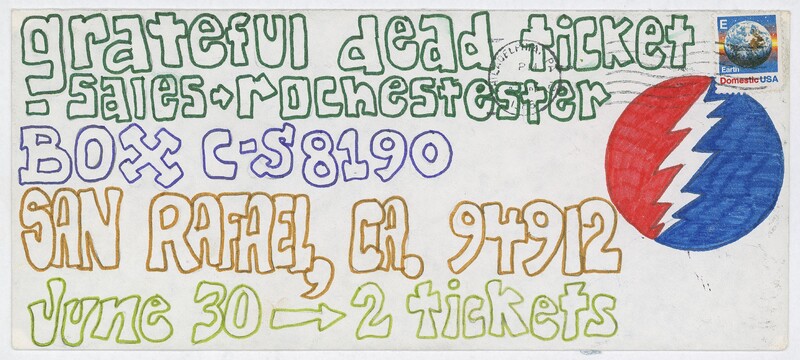 grateful dead ticket
- sales → rochestester
BOX C-S8190
SAN RAFAEL, CA. 94912
June 30 → 2 tickets
E
Earth
Domestic USA